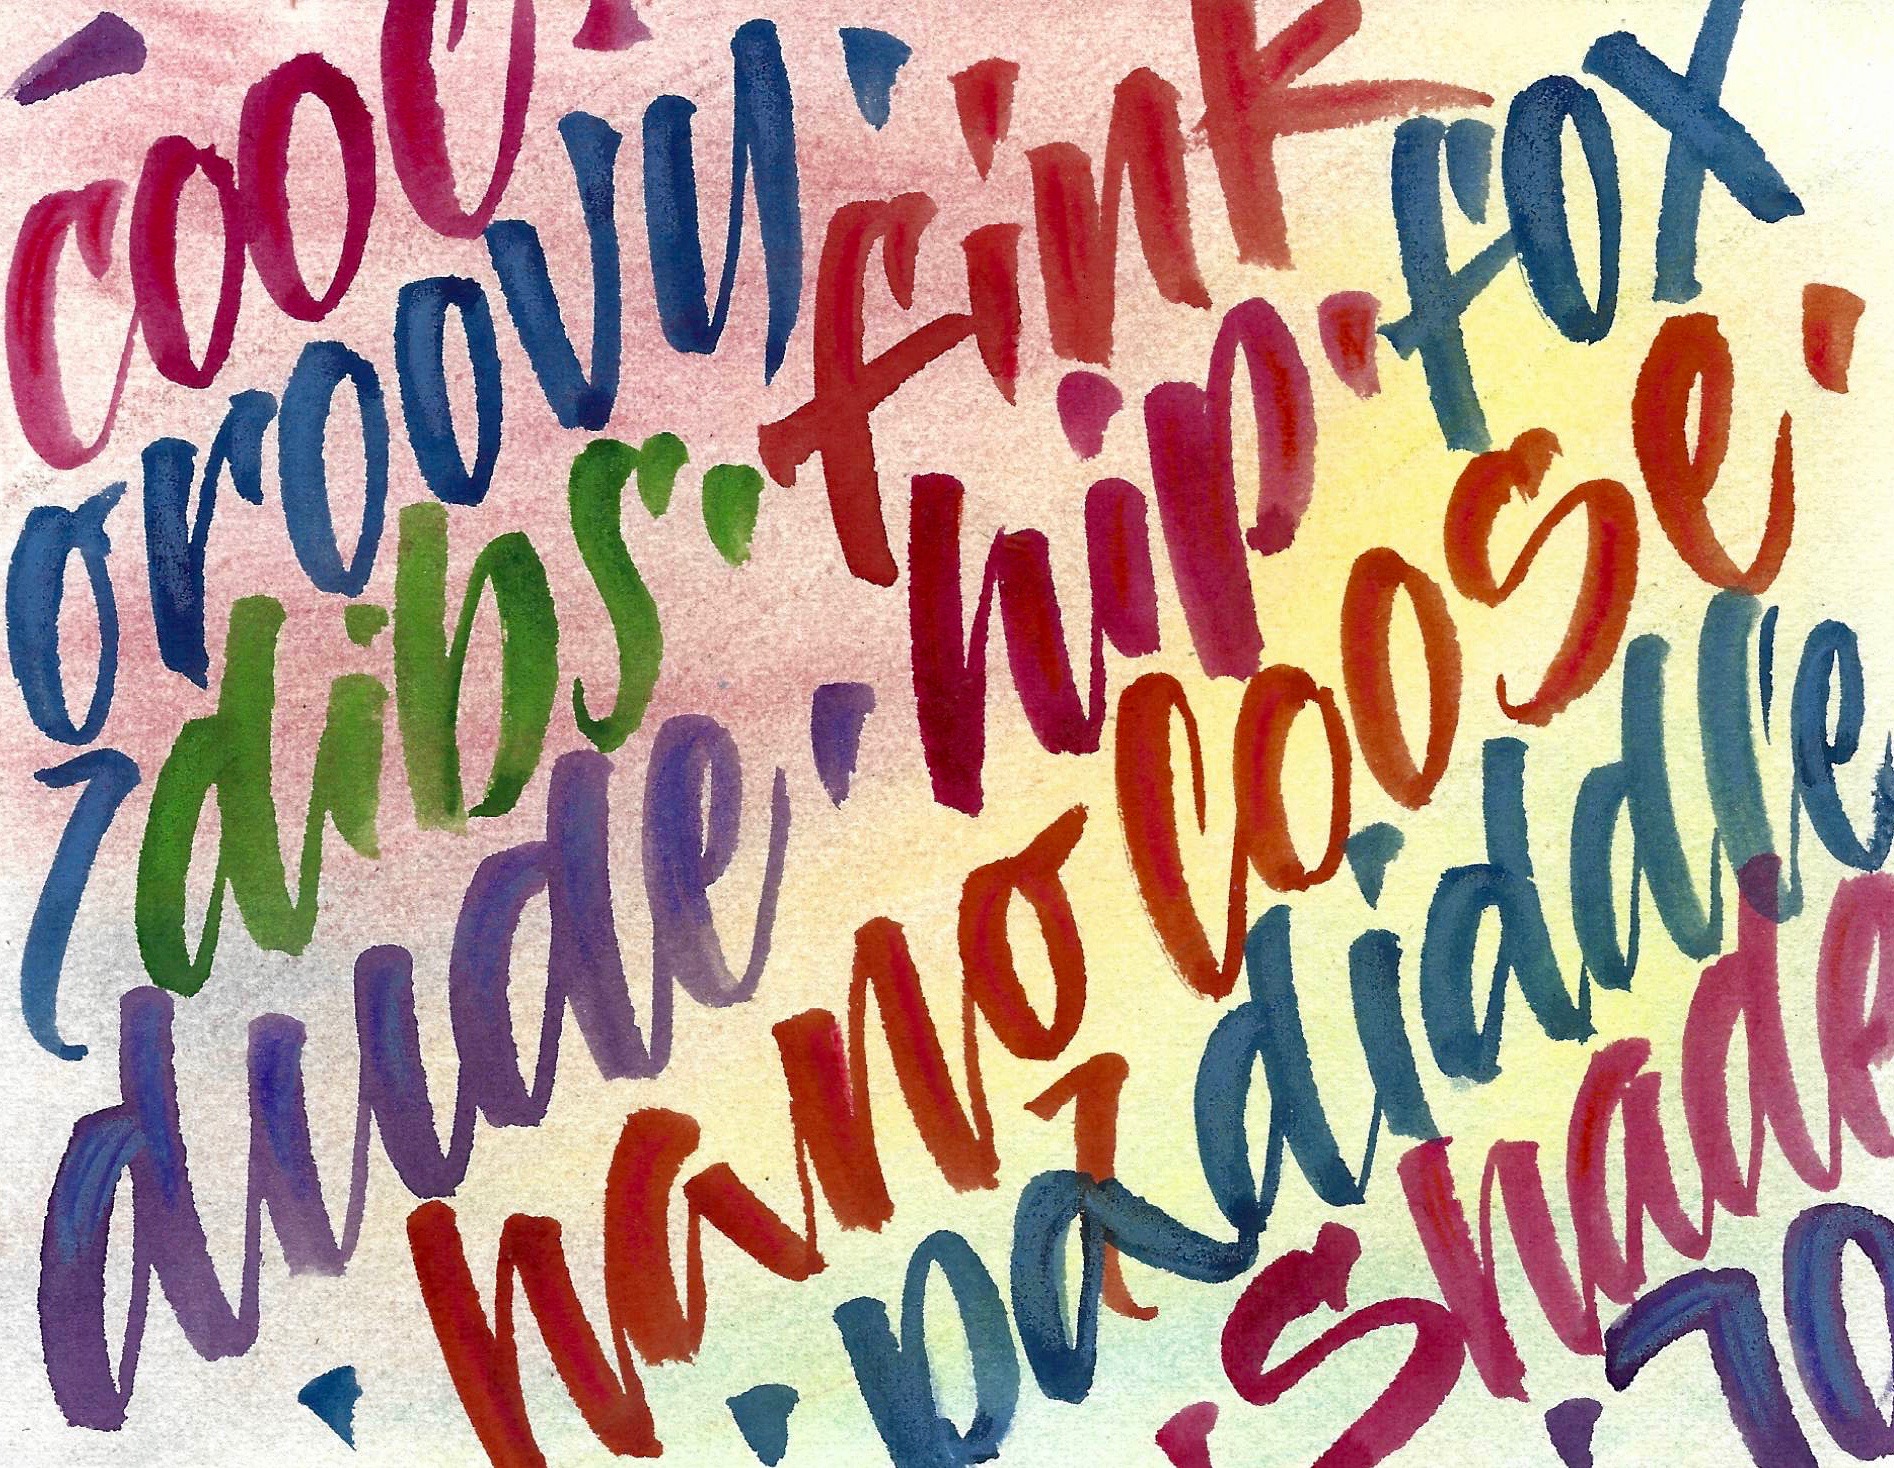 cool
groovy
fink
fox
dibs
hip
dude
hang loose
padiddle
shade